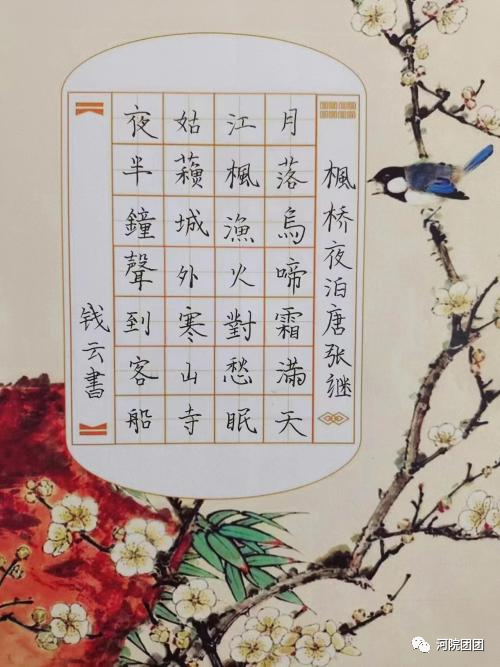 楓桥夜泊唐张继
月落烏啼霜滿天
江楓漁火對愁眠
姑蘓城外寒山寺
夜半鐘聲到客船
钱云書
河院团团